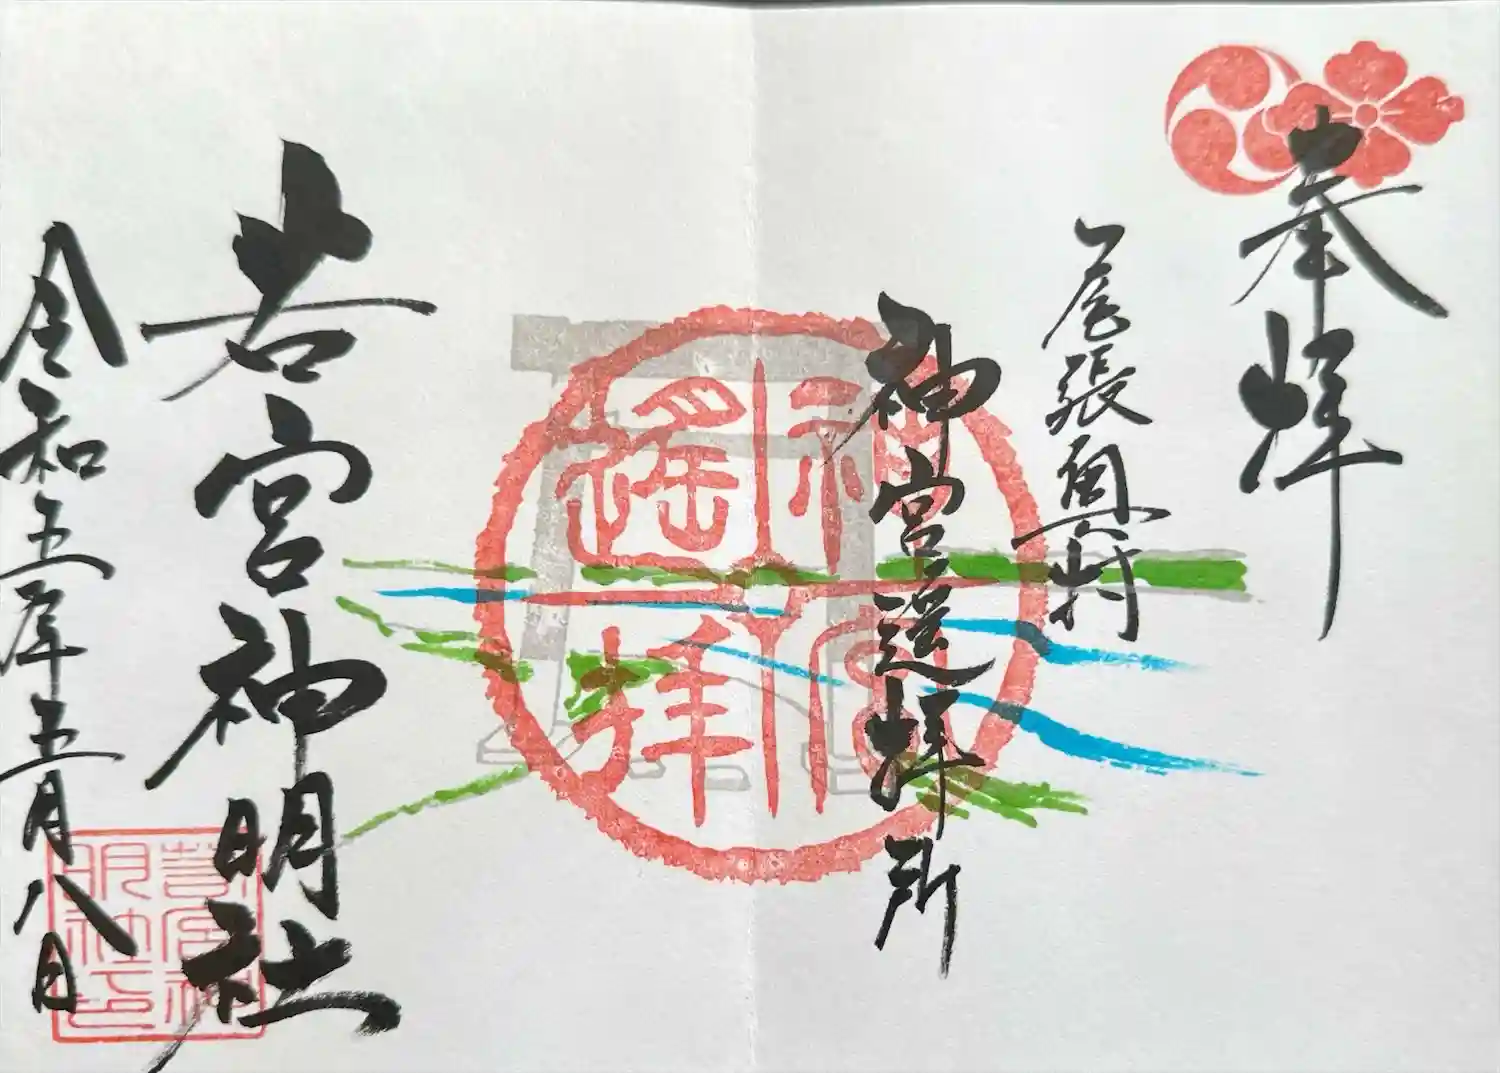 奉拝
尾張奥村
神宮遥拝所
若宮神明社
令和五年五月八日
神宮遙拝
若宮神明社印